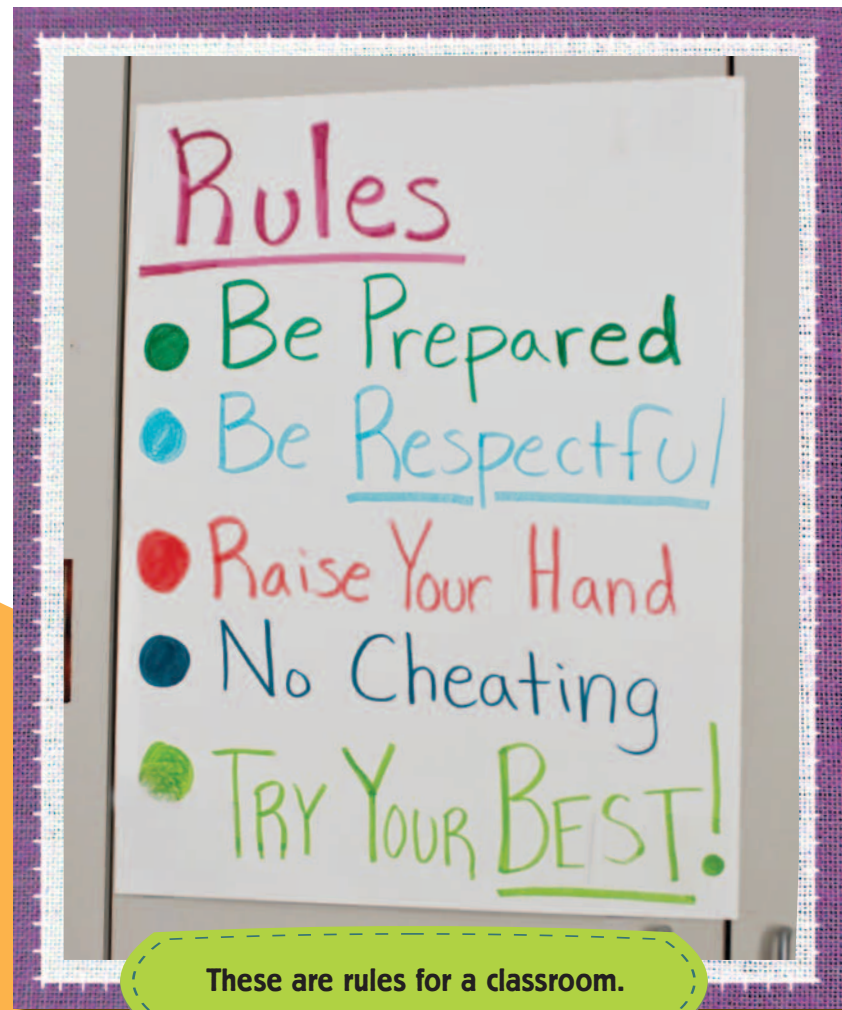 Rules
Be Prepared
Be Respectful
Raise Your Hand
No Cheating
TRY YOUR BEST!
These are rules for a classroom.